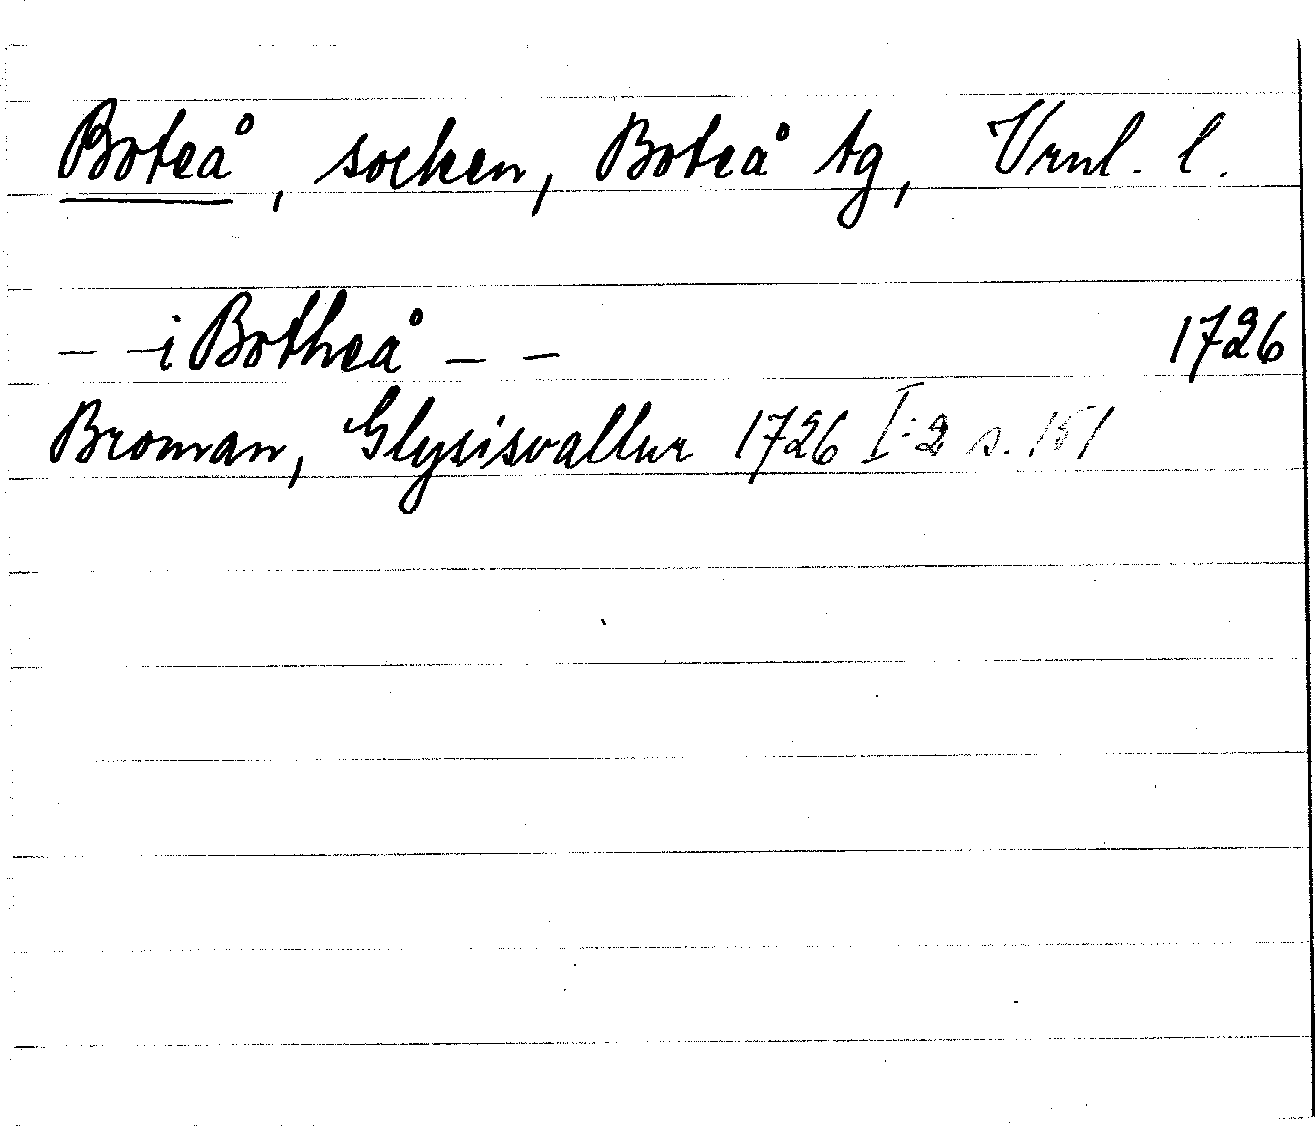 Boteå, socken, Boteå tg, Vrnl. l.
– – i Botheå – – 1726
Broman, Glysisvallur 1726 I:2 s. 151